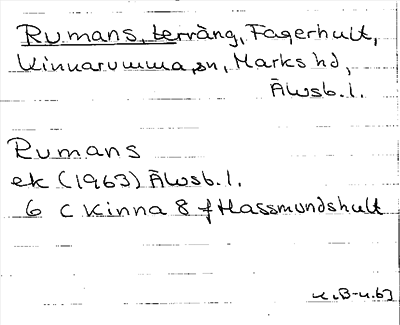 Rumans, terräng, Fagerhult,
Kinnarumma sn, Marks hd,
Älvsb. l.
Rumans
ek (1963) Älvsb. l.
6 C Kinna 8 f Hassmundshult